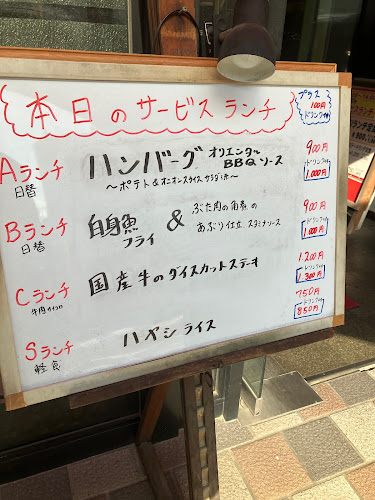 本日のサービスランチ
プラス
100円
ドリンク付
Aランチ
日替
ハンバーグ オリエンタル
BBQソース
～ポテト&オニオンスライス サラダ添～
900円
ドリンク付
1,000円
Bランチ
日替
白身魚
フライ
&
ぶた肉の角煮の
あぶり仕立 スタミナソース
900円
ドリンク付
1,000円
Cランチ
牛肉サイコロ
国産牛のダイスカットステーキ
1,200円
ドリンク付
1,300円
Sランチ
軽食
ハヤシライス
750円
ドリンク付
850円